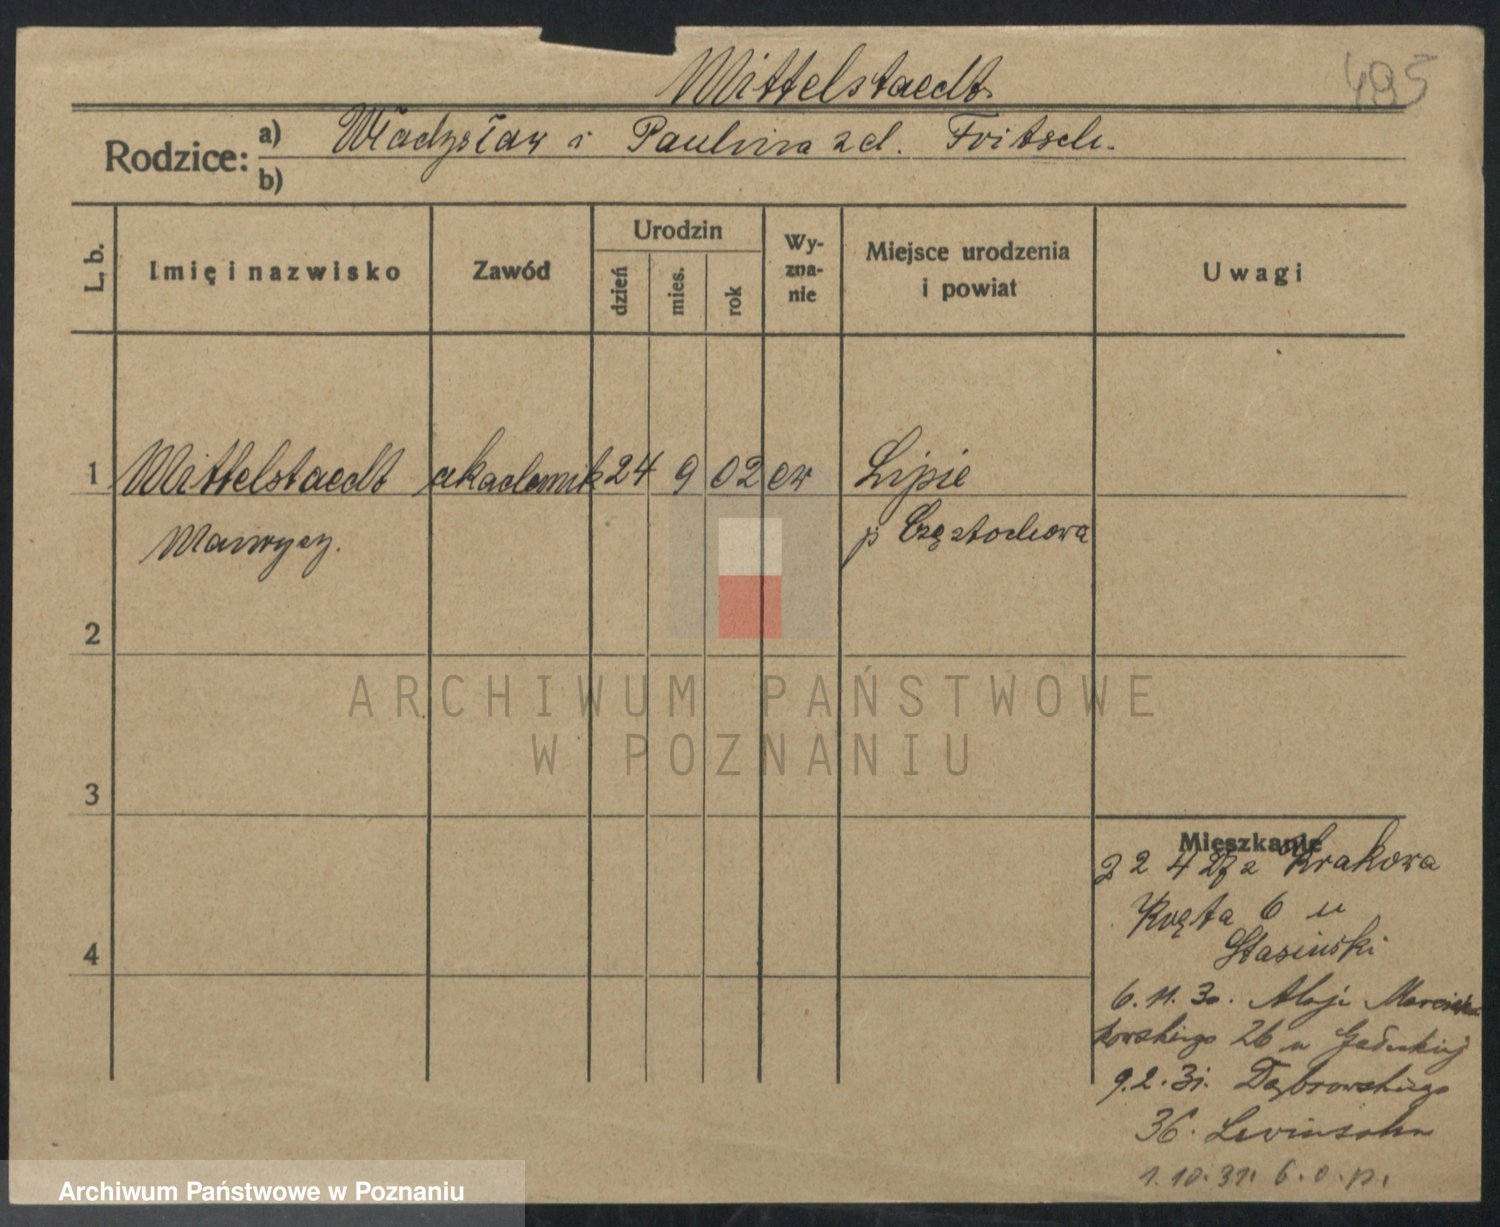 Mittelstaedt
495
Rodzice: a) Władysław i Paulina zd. Fritsch.
b)
L. b.
Imię i nazwisko
Zawód
Urodzin
dzień
mies.
rok
Wy-
zna-
nie
Miejsce urodzenia
i powiat
Uwagi
1 Mittelstaedt akademik 24 9 02 ew Lipie
Maurycy. p Częstochowa
2
3
4
Mieszkanie
22 4 27 z Krakowa
Kręta 6 u
Stasiński
6. 11. 30. Aleje Marcin
kowskiego 26 u
9. 2. 31. Dąbrowskiego
36. Levinsohn
1. 10. 31. 6. o. p.
ARCHIWUM PAŃSTWOWE
W POZNANIU
Archiwum Państwowe w Poznaniu